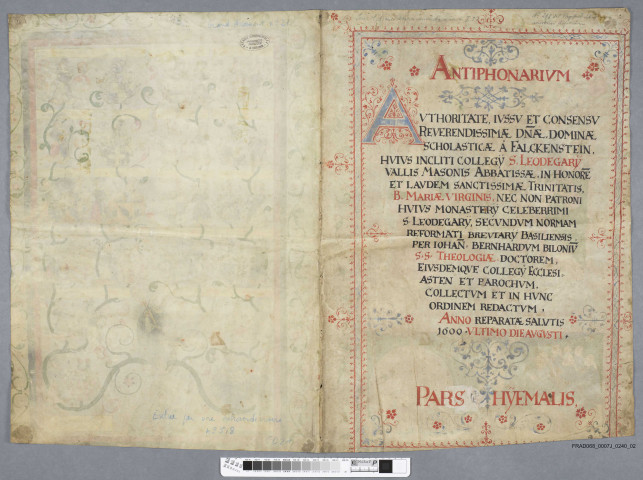 ANTIPHONARIVM
AVTHORITATE, IVSSV ET CONSENSV
REVERENDISSIMÆ DÑÆ. DOMINÆ
SCHOLASTICÆ Â FALCKENSTEIN,
HVIVS INCLITI COLLEGY S. LEODEGARY
VALLIS MASONIS ABBATISSÆ, IN HONORE
ET LAVDEM SANCTISSIMÆ TRINITATIS,
B. MARIÆ VIRGINIS, NEC NON PATRONI
HVIVS MONASTERY CELEBERRIMI
S. LEODEGARY, SECVNDVM NORMAM
REFORMATI BREVIARY BASILIENSIS
PER IOHAÑ. BERNHARDVM BILONIV̄
S.S. THEOLOGIÆ DOCTOREM,
EIVSDEMQVE COLLEGY ECCLESI.
ASTEN ET PAROCHVM.
COLLECTVM ET IN HVNC
ORDINEM REDACTVM,
ANNO REPARATÆ SALVTIS
1600. VLTIMO DIE AVGVSTI.
PARS HYEMALIS.
FRAD068_0007J_0240_02